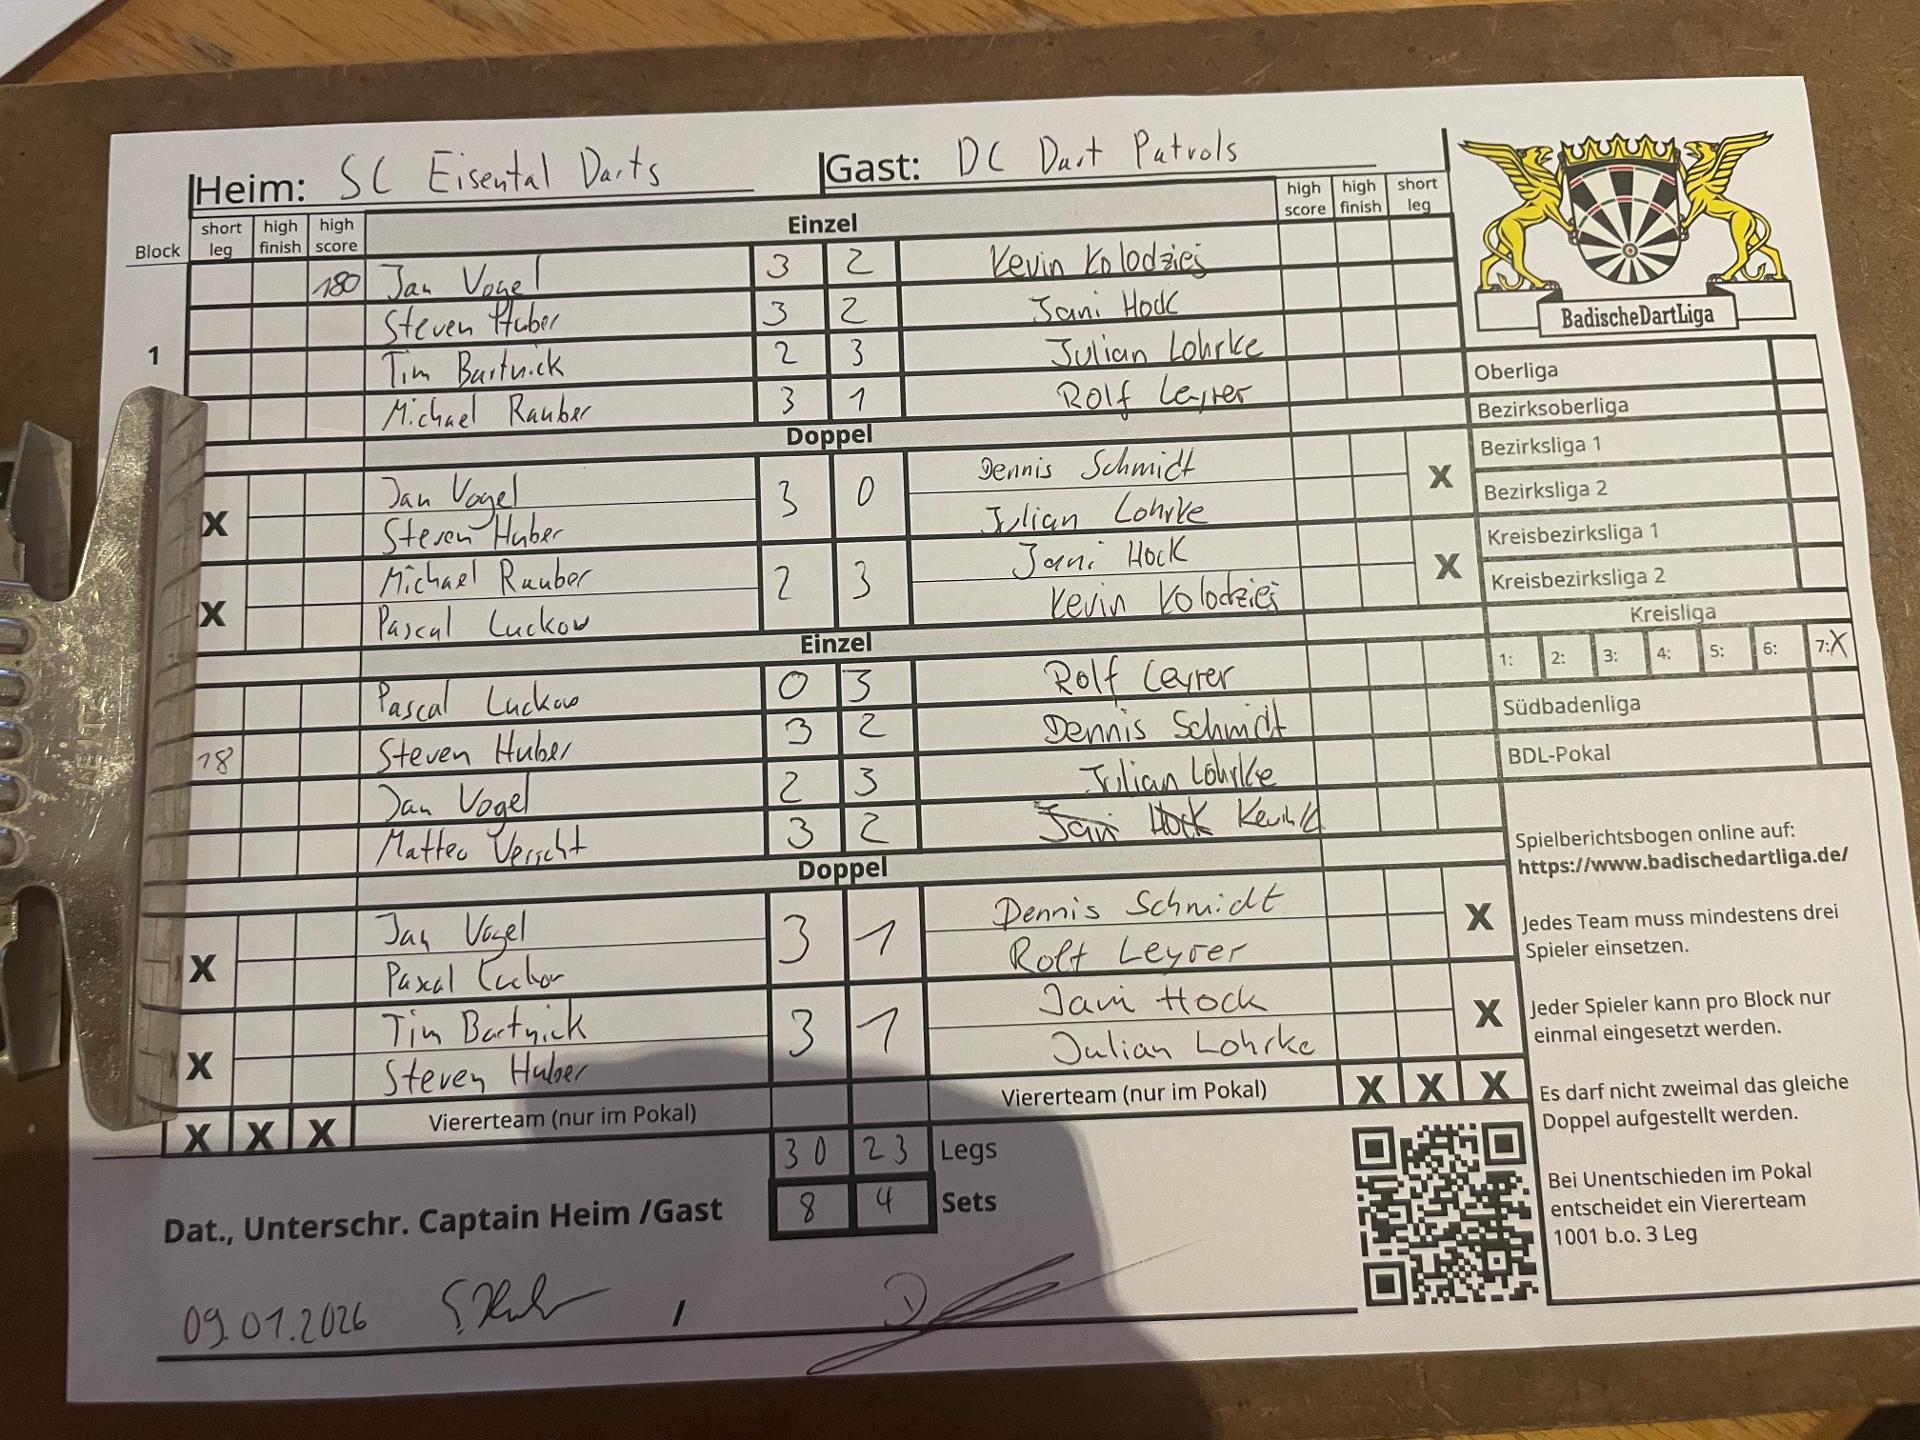 Heim: SC Eisental Darts Gast: DC Dart Patrols
Block short leg high finish high score Einzel high score high finish short leg
180 Jan Vogel 3 2 Kevin Kolodziej
Steven Huber 3 2 Jani Hock
1 Tim Bartnick 2 3 Julian Lohrke
Michael Rauber 3 1 Rolf Leyrer
Doppel
Jan Vogel 3 0 Dennis Schmidt
X Steven Huber Julian Lohrke X
Michael Rauber 2 3 Jani Hock
X Pascal Luckow Kevin Kolodziej X
Einzel
Pascal Luckow 0 3 Rolf Leyrer
18 Steven Huber 3 2 Dennis Schmidt
Jan Vogel 2 3 Julian Lohrke
Matteo 3 2 Jani Hock Kevin K
Doppel
Jan Vogel 3 1 Dennis Schmidt
X Pascal Rolf Leyrer X
Tim Bartnick 3 1 Jani Hock
X Steven Huber Julian Lohrke X
X X X Viererteam (nur im Pokal) Viererteam (nur im Pokal) X X X
30 23 Legs
8 4 Sets
Dat., Unterschr. Captain Heim /Gast
09.01.2026 /
BadischeDartLiga
Oberliga
Bezirksoberliga
Bezirksliga 1
Bezirksliga 2
Kreisbezirksliga 1
Kreisbezirksliga 2
Kreisliga
1: 2: 3: 4: 5: 6: 7:X
Südbadenliga
BDL-Pokal
Spielberichtsbogen online auf:
https://www.badischedartliga.de/
Jedes Team muss mindestens drei
Spieler einsetzen.
Jeder Spieler kann pro Block nur
einmal eingesetzt werden.
Es darf nicht zweimal das gleiche
Doppel aufgestellt werden.
Bei Unentschieden im Pokal
entscheidet ein Viererteam
1001 b.o. 3 Leg